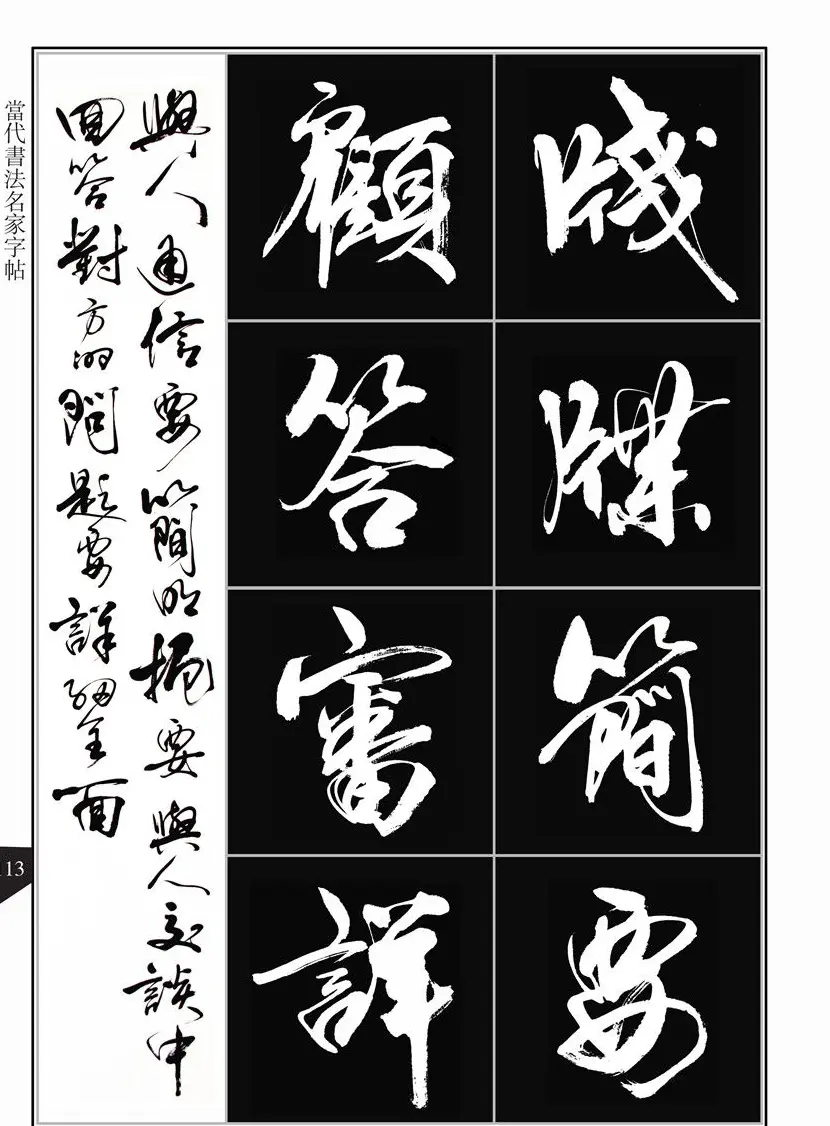 牋牒簡要
顧答審詳
與人通信要簡明扼要與人交談中
回答對方的問題要詳細全面
當代書法名家字帖
113